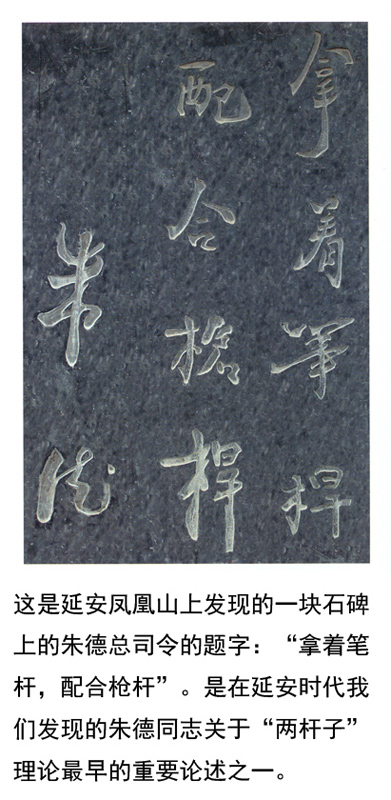 拿着筆桿
配合槍桿
朱德
这是延安凤凰山上发现的一块石碑
上的朱德总司令的题字：“拿着笔
杆，配合枪杆”。是在延安时代我
们发现的朱德同志关于“两杆子”
理论最早的重要论述之一。